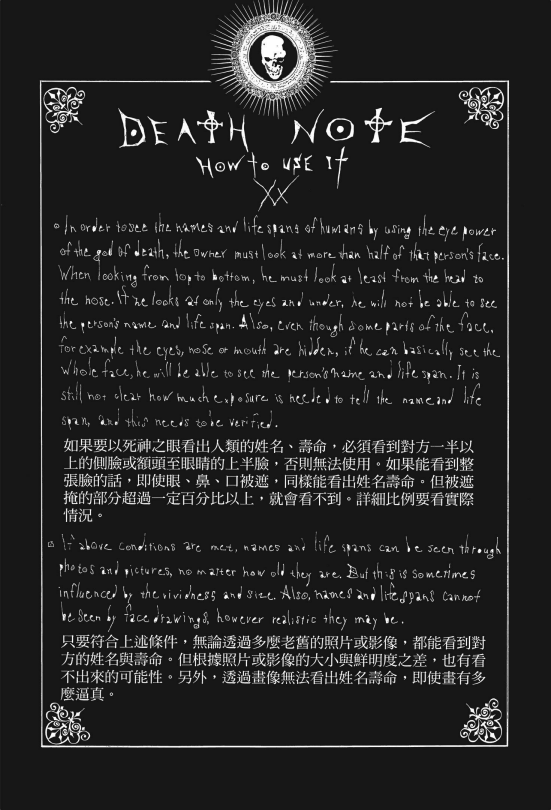 DEATH NOTE
HOW to USE It
XX
In order to see the names and life spans of humans by using the eye power
of the god of death, the owner must look at more than half of that person's face.
When looking from top to bottom, he must look at least from the head to
the nose. If he looks at only the eyes and under, he will not be able to see
the person's name and life span. Also, even though some parts of the face,
for example the eyes, nose or mouth are hidden, if he can basically see the
whole face, he will be able to see the person's name and life span. It is
still not clear how much exposure is needed to tell the name and life
span, and this needs to be verified.
如果要以死神之眼看出人類的姓名、壽命，必須看到對方一半以
上的側臉或額頭至眼睛的上半臉，否則無法使用。如果能看到整
張臉的話，即使眼、鼻、口被遮，同樣能看出姓名壽命。但被遮
掩的部分超過一定百分比以上，就會看不到。詳細比例要看實際
情況。
If above conditions are met, names and life spans can be seen through
photos and pictures, no matter how old they are. But this is sometimes
influenced by the vividness and size. Also, names and life spans cannot
be seen by face drawings, however realistic they may be.
只要符合上述條件，無論透過多麼老舊的照片或影像，都能看到對
方的姓名與壽命。但根據照片或影像的大小與鮮明度之差，也有看
不出來的可能性。另外，透過畫像無法看出姓名壽命，即使畫有多
麼逼真。